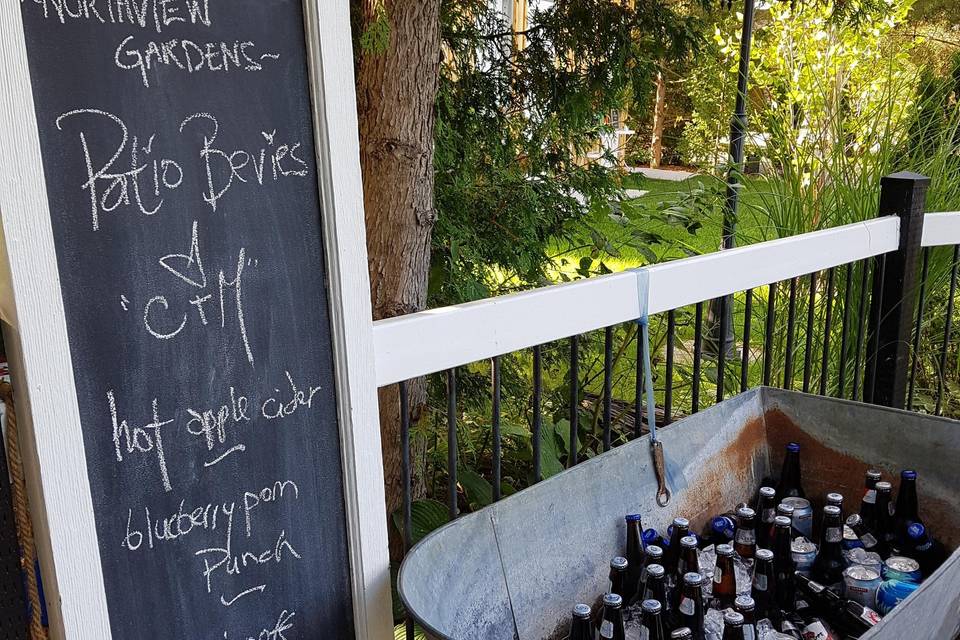 NORTHVIEW
GARDENS~
Patio Bevies
"C+M"
hot apple cider
blueberry pom
Punch